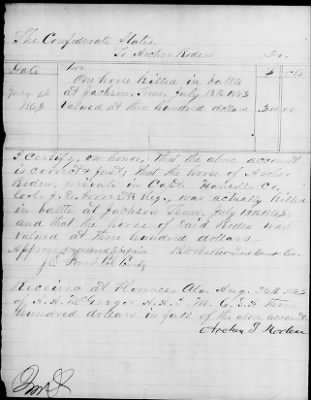 The Confederate States
To Archer Roden Dr.
Date For $ Cts
July 13 One horse killed in battle
1863 at Jackson Tenn. July 13th 1863
valued at three hundred dollars 300 00
I certify, on honor, that the above account
is correct & just; that the horse of Archer
Roden, private in Capt. Co.
Col. J. Reg., was actually killed
in battle at Jackson Tenn. July 13th 1863
and that the horse of said Roden was
valued at three hundred dollars
Approved
Col Comdg
Received at Florence Ala. Aug. 24th 1863
of A. A. Q. M. C.S.A. three
hundred dollars in full of the above account.
Archer Roden